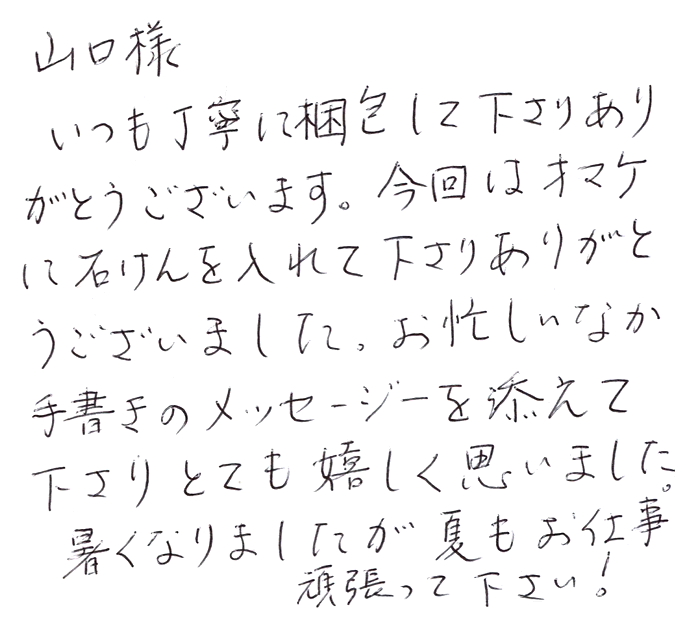 山口様
いつも丁寧に梱包して下さりあり
がとうございます。今回はオマケ
に石けんを入れて下さりありがと
うございました。お忙しいなか
手書きのメッセージーを添えて
下さりとても嬉しく思いました。
暑くなりましたが夏もお仕事
頑張って下さい!